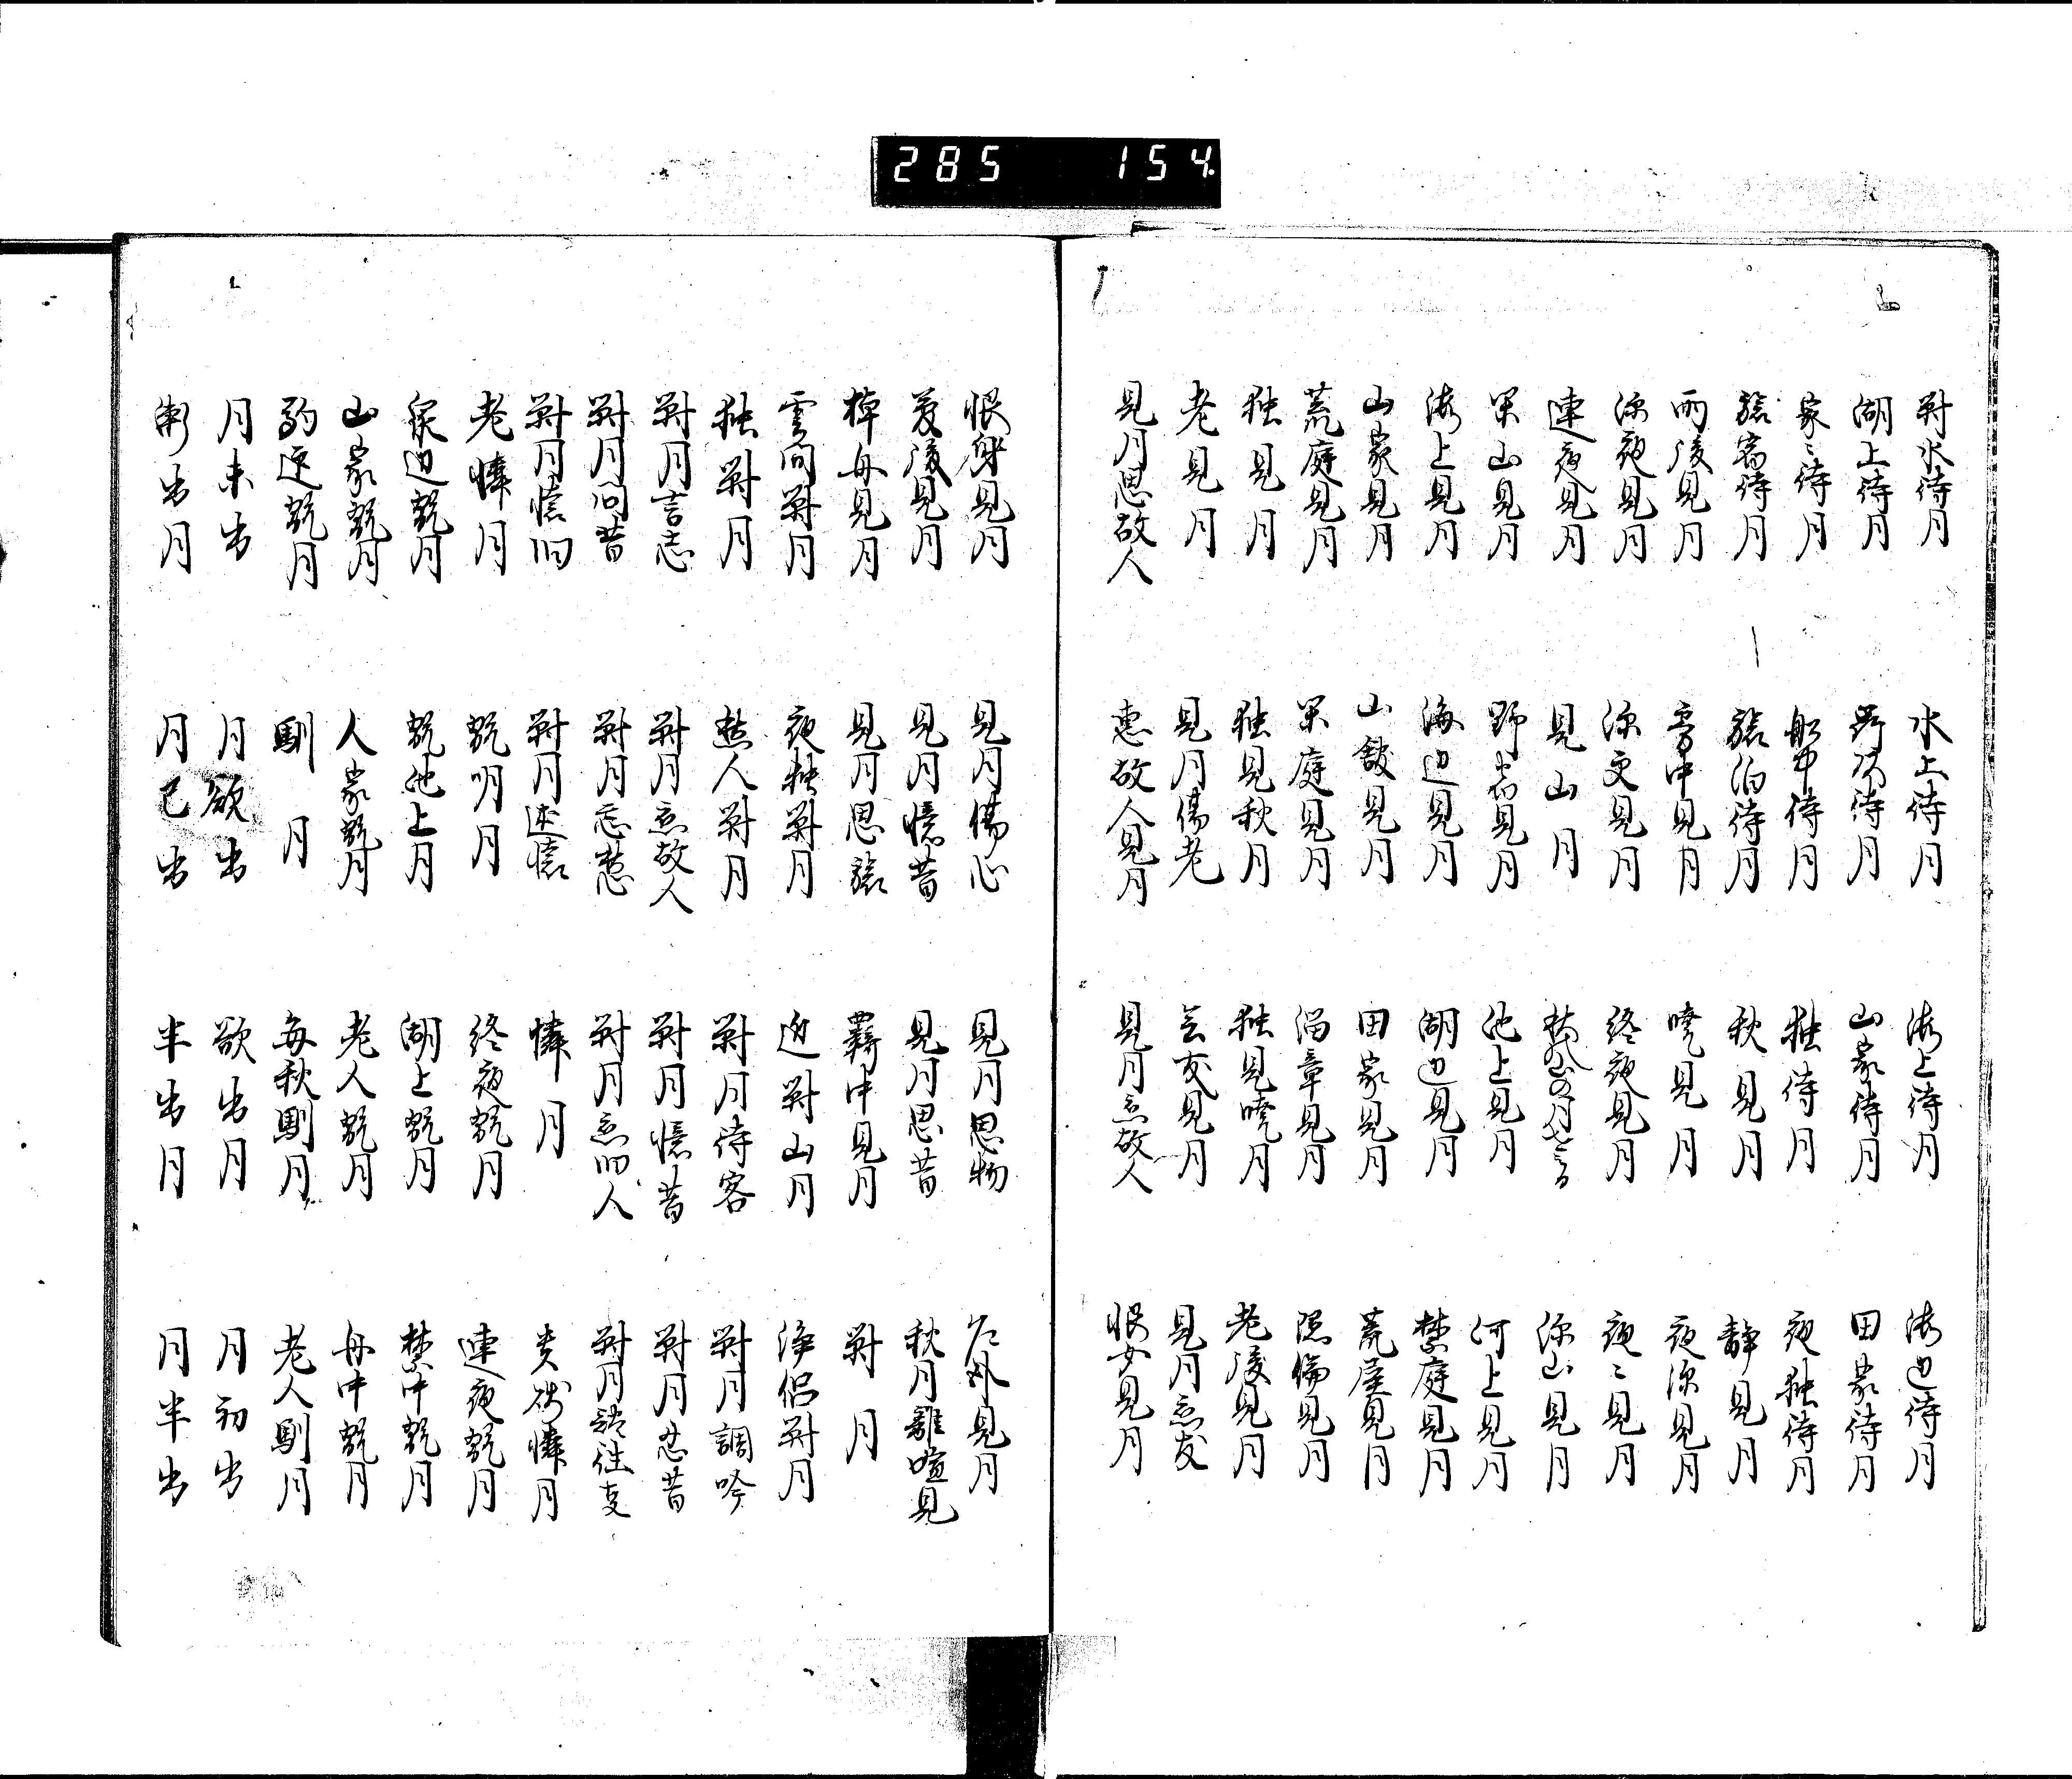 285 154
対水待月 水上待月 海上待月 海辺待月
湖上待月 野外待月 山家待月 田家待月
家々待月 船中待月 独待月 夜独待月
旅宿待月 旅泊待月 秋見月 静見月
雨後見月 雲中見月 暁見月 夜深見月
深夜見月 深更見月 終夜見月 夜々見月
連夜見月 見山月 深山見月
山見月 野客見月 池上見月 河上見月
海上見月 海辺見月 湖辺見月 禁庭見月
山家見月 山館見月 田家見月 荒屋見月
荒庭見月 閑庭見月 見月 隠倫見月
独見月 独見秋月 独見暁月 老後見月
老見月 見月傷老 会友見月 見月恋友
見月思故人 恵故人見月 見月恋故人 恨女見月
恨身見月 見月傷心 見月思物 見月
見月 見月憶昔 見月思昔 秋月離喧見
棹舟見月 見月思旅 羇中見月 対月
雲間対月 夜独対月 近対山月 浄侶対月
独対月 愁人対月 対月待客 対月調吟
対月言志 対月恋故人 対月憶昔 対月忍昔
対月問昔 対月忘愁 対月恋旧人 対月談往事
対月懐旧 対月述懐 憐月 憐月
老憐月 翫明月 終夜翫月 連夜翫月
泉辺翫月 翫池上月 湖上翫月 禁中翫月
山家翫月 人家翫月 老人翫月 舟中翫月
翫月 馴月 毎秋馴月 老人馴月
月未出 月欲出 欲出月 月初出
漸出月 月已出 半出月 月半出